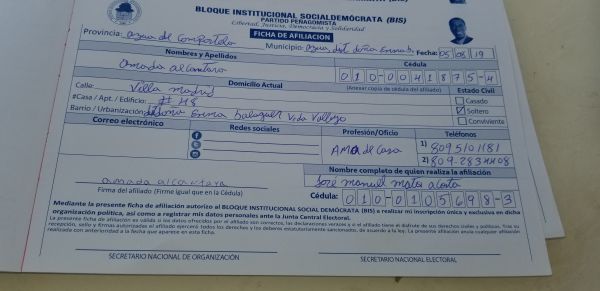 BLOQUE INSTITUCIONAL SOCIALDEMÓCRATA (BIS)
PARTIDO PEÑAGOMISTA
Libertad, Justicia, Democracia y Solidaridad
FICHA DE AFILIACION
Provincia: azua de Compostela Municipio: Fecha: 05 08 19
Nombres y Apellidos Cédula
amada alcantara 010-0041875-4
Domicilio Actual (Anexar copia de cédula del afiliado) Estado Civil
Calle: Villa madrid Casado
#Casa / Apt. / Edificio: # 48 Soltero
Barrio / Urbanización: Conviviente
Correo electrónico Redes sociales Profesión/Oficio Teléfonos
AMA de Casa 1) 8095101181
2) 809-283
Nombre completo de quien realiza la afiliación
amada alcantara José manuel matos acosta
Firma del afiliado (Firme igual que en la Cédula) Cédula: 010-0105698-3
Mediante la presente ficha de afiliación autorizo al BLOQUE INSTITUCIONAL SOCIAL DEMÓCRATA (BIS) a realizar mi inscripción única y exclusiva en dicha
organización política, así como a registrar mis datos personales ante la Junta Central Electoral.
La presente ficha de afiliación es válida si los datos ofrecidos por el afiliado son correctos, las declaraciones veraces y si el afiliado tiene el disfrute de sus derechos civiles y políticos. Tras su
recepción, sello y firmas autorizadas el afiliado ejercerá todos los derechos y los deberes estatutariamente sancionados, de acuerdo a la ley. La presente afiliación anula cualquier afiliación
realizada con anterioridad a la fecha que aparece en esta ficha.
SECRETARIO NACIONAL DE ORGANIZACIÓN SECRETARIO NACIONAL ELECTORAL